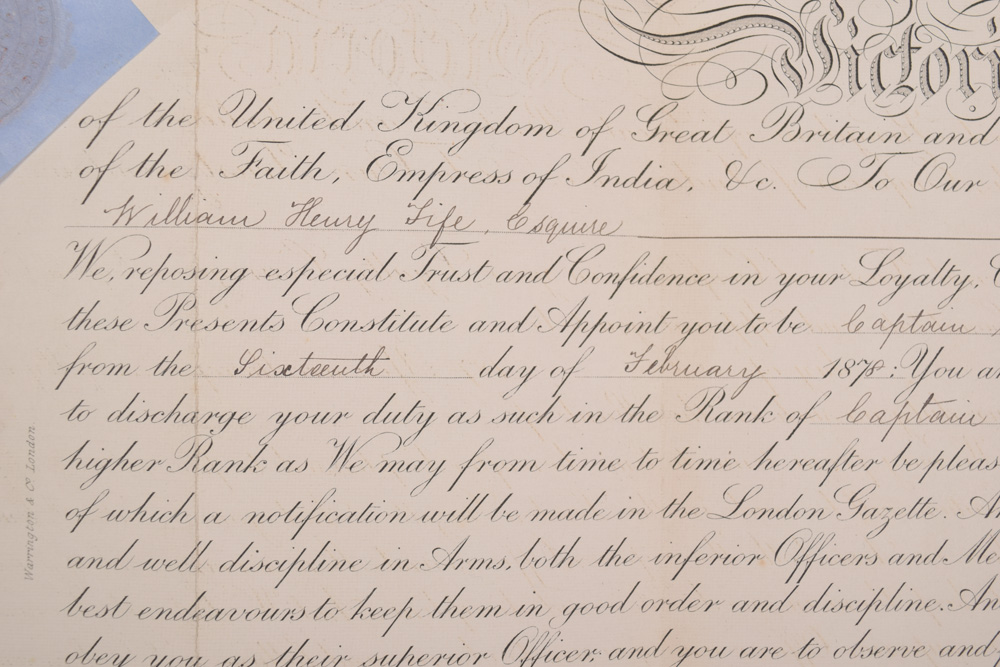 Victori
of the United Kingdom of Great Britain and
of the Faith, Empress of India, &c. To Our
William Henry Fife, Esquire
We, reposing especial Trust and Confidence in your Loyalty,
these Presents Constitute and Appoint you to be Captain
from the Sixteenth day of February 1878: You
to discharge your duty as such in the Rank of Captain
higher Rank as We may from time to time hereafter be pleas
of which a notification will be made in the London Gazette.
and well discipline in Arms, both the inferior Officers and Me
best endeavours to keep them in good order and discipline. An
obey you as their superior Officer: and you are to observe and
Warrington & Co London.